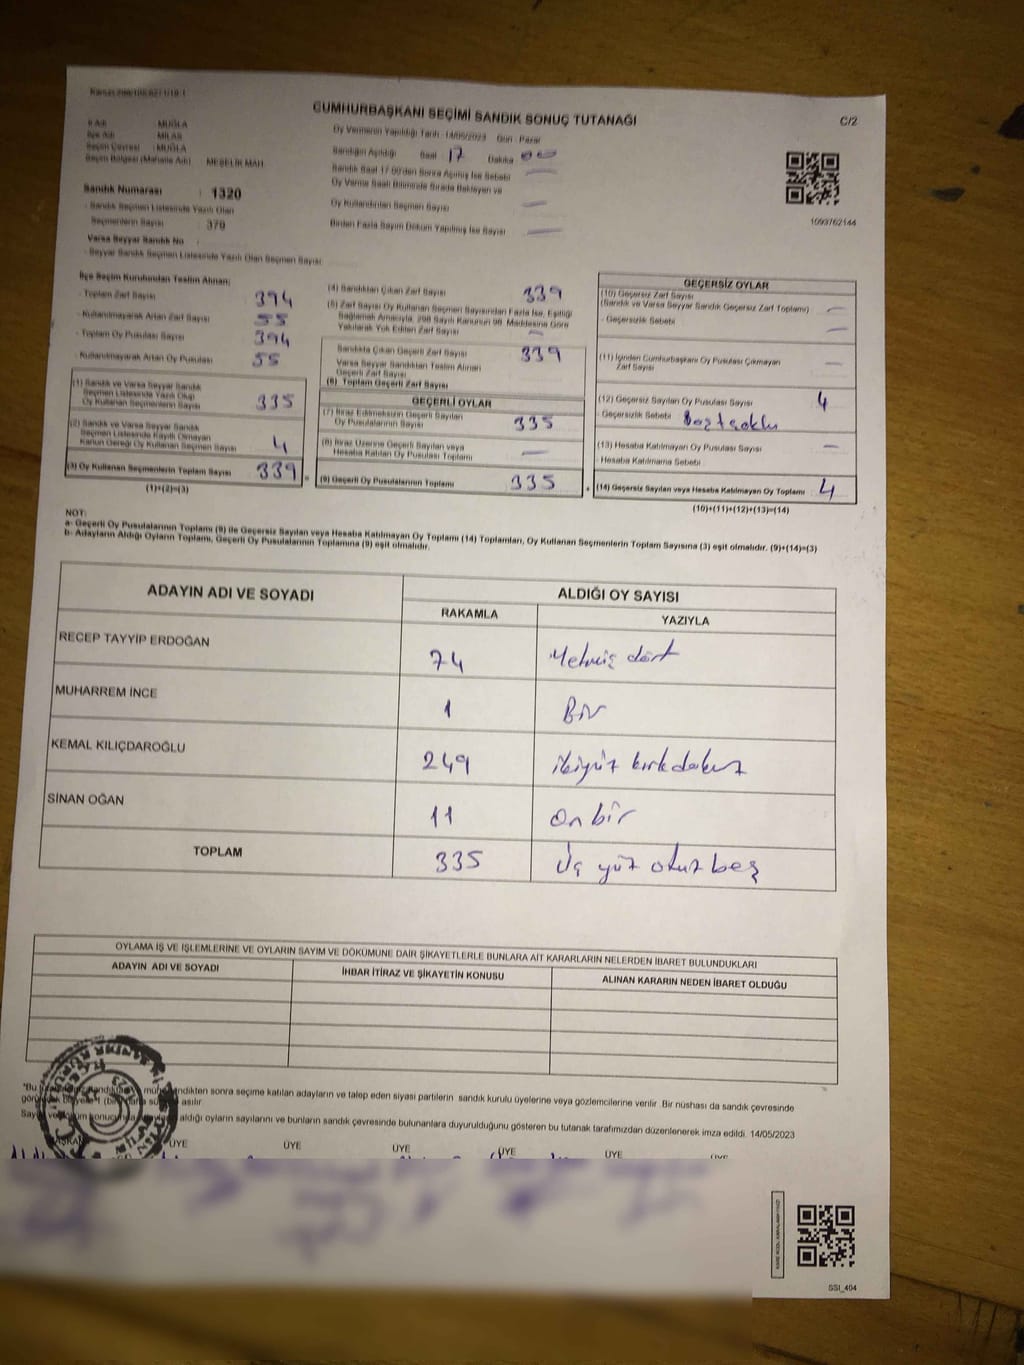 CUMHURBAŞKANI SEÇİMİ SANDIK SONUÇ TUTANAĞI
C/2
İl Adı : MUĞLA
İlçe Adı : MİLAS
Seçim Çevresi : MUĞLA
Seçim Bölgesi (Mahalle Adı) : MEŞELİK MAH.
Oy Vermenin Yapıldığı Tarih : 14/05/2023 Gün : Pazar
Sandığın Açıldığı Saat 17 Dakika 00
Sandık Saat 17:00'den Sonra Açılmış İse Sebebi —
Oy Verme Saati Bitiminde Sırada Bekleyen ve
Oy Kullandırılan Seçmen Sayısı —
Birden Fazla Sayım Döküm Yapılmış İse Sayısı —
1093762144
Sandık Numarası : 1320
- Sandık Seçmen Listesinde Yazılı Olan
Seçmenlerin Sayısı : 379
Varsa Seyyar Sandık No :
- Seyyar Sandık Seçmen Listesinde Yazılı Olan Seçmen Sayısı :
İlçe Seçim Kurulundan Teslim Alınan;
- Toplam Zarf Sayısı 394
- Kullanılmayarak Artan Zarf Sayısı 55
- Toplam Oy Pusulası Sayısı 394
- Kullanılmayarak Artan Oy Pusulası 55
(1) Sandık ve Varsa Seyyar Sandık
Seçmen Listesinde Yazılı Olup
Oy Kullanan Seçmenlerin Sayısı 335
(2) Sandık ve Varsa Seyyar Sandık
Seçmen Listesinde Kayıtlı Olmayan
Kanun Gereği Oy Kullanan Seçmen Sayısı 4
(3) Oy Kullanan Seçmenlerin Toplam Sayısı 339
(1)+(2)=(3)
(4) Sandıktan Çıkan Zarf Sayısı 339
(5) Zarf Sayısı Oy Kullanan Seçmen Sayısından Fazla İse, Eşitliği
Sağlamak Amacıyla, 298 Sayılı Kanunun 98. Maddesine Göre
Yakılarak Yok Edilen Zarf Sayısı —
Sandıkta Çıkan Geçerli Zarf Sayısı 339
Varsa Seyyar Sandıktan Teslim Alınan
Geçerli Zarf Sayısı
(6) Toplam Geçerli Zarf Sayısı
GEÇERLİ OYLAR
(7) İtiraz Edilmeksizin Geçerli Sayılan
Oy Pusulalarının Sayısı 335
(8) İtiraz Üzerine Geçerli Sayılan veya
Hesaba Katılan Oy Pusulası Toplamı —
(9) Geçerli Oy Pusulalarının Toplamı 335
GEÇERSİZ OYLAR
(10) Geçersiz Zarf Sayısı
(Sandık ve Varsa Seyyar Sandık Geçersiz Zarf Toplamı) —
- Geçersizlik Sebebi —
(11) İçinden Cumhurbaşkanı Oy Pusulası Çıkmayan
Zarf Sayısı —
(12) Geçersiz Sayılan Oy Pusulası Sayısı 4
- Geçersizlik Sebebi
(13) Hesaba Katılmayan Oy Pusulası Sayısı —
- Hesaba Katılmama Sebebi
(14) Geçersiz Sayılan veya Hesaba Katılmayan Oy Toplamı 4
(10)+(11)+(12)+(13)=(14)
NOT:
a- Geçerli Oy Pusulalarının Toplamı (9) ile Geçersiz Sayılan veya Hesaba Katılmayan Oy Toplamı (14) Toplamları, Oy Kullanan Seçmenlerin Toplam Sayısına (3) eşit olmalıdır. (9)+(14)=(3)
b- Adayların Aldığı Oyların Toplamı, Geçerli Oy Pusulalarının Toplamına (9) eşit olmalıdır.
ADAYIN ADI VE SOYADI
ALDIĞI OY SAYISI
RAKAMLA YAZIYLA
RECEP TAYYİP ERDOĞAN 74 Yetmiş dört
MUHARREM İNCE 1 Bir
KEMAL KILIÇDAROĞLU 249 ikiyüz kırkdokuz
SİNAN OĞAN 11 onbir
TOPLAM 335 Üç yüz otuz beş
OYLAMA İŞ VE İŞLEMLERİNE VE OYLARIN SAYIM VE DÖKÜMÜNE DAİR ŞİKAYETLERLE BUNLARA AİT KARARLARIN NELERDEN İBARET BULUNDUKLARI
ADAYIN ADI VE SOYADI İHBAR İTİRAZ VE ŞİKAYETİN KONUSU ALINAN KARARIN NEDEN İBARET OLDUĞU
*Bu mühürlendikten sonra seçime katılan adayların ve talep eden siyasi partilerin sandık kurulu üyelerine veya gözlemcilerine verilir. Bir nüshası da sandık çevresinde
asılır.
aldığı oyların sayılarını ve bunların sandık çevresinde bulunanlara duyurulduğunu gösteren bu tutanak tarafımızdan düzenlenerek imza edildi. 14/05/2023
BAŞKAN ÜYE ÜYE ÜYE ÜYE ÜYE ÜYE
SSI_404